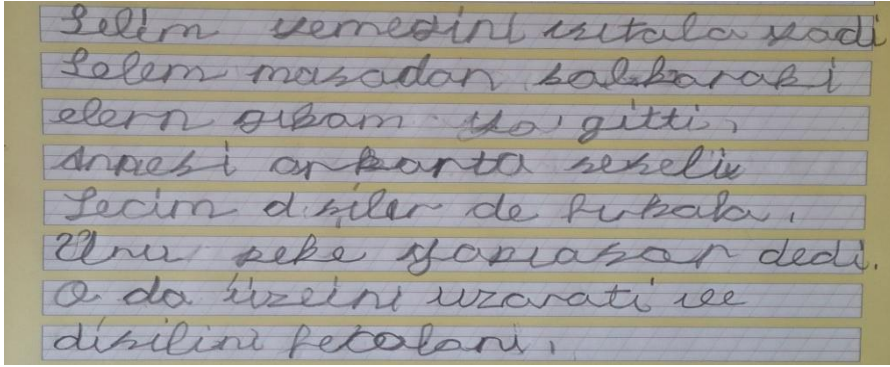 Selim yemegini ısıtala yadi
Selem masadan kalkaraki
elern gıkam ya gitti,
Annesi arkanta seseliu
Secim disiler de fukala,
Unu peke yapıasan dedi.
O da üzeini uzarati ve
disilini fetolani,